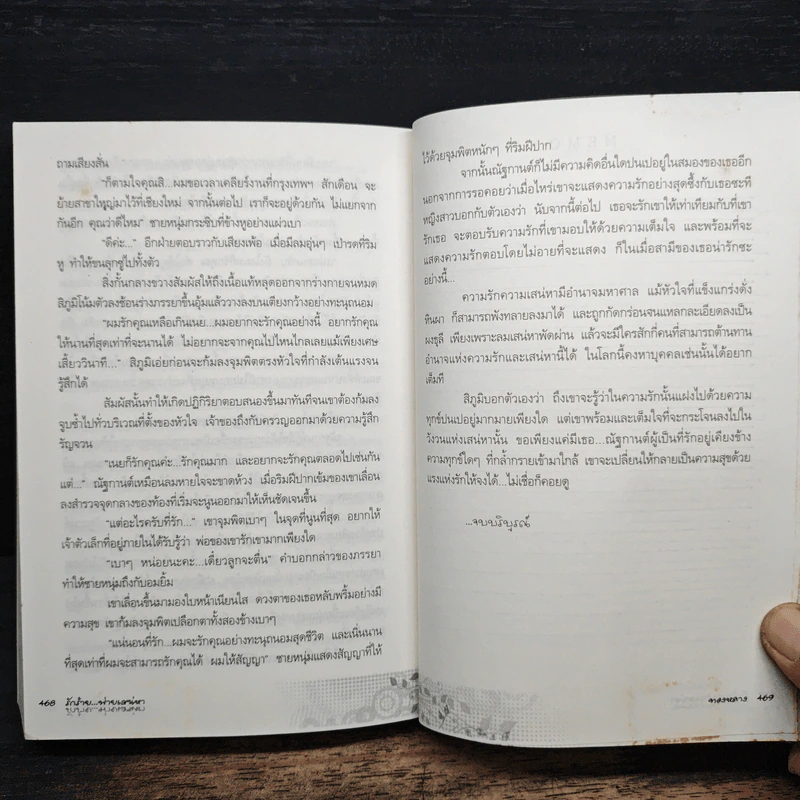 ถามเสียงสั่น
"ก็ตามใจคุณสิ...ผมขอเวลาเคลียร์งานที่กรุงเทพฯ สักเดือน จะ
ย้ายสาขาใหญ่มาไว้ที่เชียงใหม่ จากนั้นต่อไป เราก็จะอยู่ด้วยกัน ไม่แยกจาก
กันอีก คุณว่าดีไหม" ชายหนุ่มกระซิบที่ข้างหูอย่างแผ่วเบา
"ดีค่ะ..." อีกฝ่ายตอบราวกับเสียงเพ้อ เมื่อมีลมอุ่นๆ เป่ารดที่ริม
หู ทำให้ขนลุกซู่ไปทั้งตัว
สิ่งกั้นกลางขวางสัมผัสให้ถึงเนื้อแท้หลุดออกจากร่างกายจนหมด
สิภูมิโน้มตัวลงช้อนร่างภรรยาขึ้นอุ้มแล้ววางลงบนเตียงกว้างอย่างทะนุถนอม
"ผมรักคุณเหลือเกินเนย...ผมอยากจะรักคุณอย่างนี้ อยากรักคุณ
ให้นานที่สุดเท่าที่จะนานได้ ไม่อยากจะจากคุณไปไหนไกลเลยแม้เพียงเศษ
เสี้ยววินาที..." สิภูมิเอ่ยก่อนจะก้มลงจุมพิตตรงหัวใจที่กำลังเต้นแรงจน
รู้สึกได้
สัมผัสนั้นทำให้เกิดปฏิกิริยาตอบสนองขึ้นมาทันทีจนเขาต้องก้มลง
จูบซ้ำไปทั่วบริเวณที่ตั้งของหัวใจ เจ้าของถึงกับครวญออกมาด้วยความรู้สึก
รัญจวน
"เนยก็รักคุณค่ะ...รักคุณมาก และอยากจะรักคุณตลอดไปเช่นกัน
แต่..." ณัฐกานต์เหมือนลมหายใจจะขาดห้วง เมื่อริมฝีปากเข้มของเขาเลื่อน
ลงสำรวจจุดกลางของท้องที่เริ่มจะนูนออกมาให้เห็นชัดเจนขึ้น
"แต่อะไรครับที่รัก..." เขาจุมพิตเบาๆ ในจุดที่นูนที่สุด อยากให้
เจ้าตัวเล็กที่อยู่ภายในได้รับรู้ว่า พ่อของเขารักเขามากเพียงใด
"เบาๆ หน่อยนะคะ...เดี๋ยวลูกจะตื่น" คำบอกกล่าวของภรรยา
ทำให้ชายหนุ่มถึงกับอมยิ้ม
เขาเลื่อนขึ้นมามองใบหน้าเนียนใส ดวงตาของเธอหลับพริ้มอย่างมี
ความสุข เขาก้มลงจุมพิตเปลือกตาทั้งสองข้างเบาๆ
"แน่นอนที่รัก...ผมจะรักคุณอย่างทะนุถนอมสุดชีวิต และเนิ่นนาน
ที่สุดเท่าที่ผมจะสามารถรักคุณได้ ผมให้สัญญา" ชายหนุ่มแสดงสัญญาที่ให้
468 รักร้าย...พ่ายเสน่หา
ไว้ด้วยจุมพิตหนักๆ ที่ริมฝีปาก
จากนั้นณัฐกานต์ก็ไม่มีความคิดอื่นใดปนเปอยู่ในสมองของเธออีก
นอกจากการรอคอยว่าเมื่อไหร่เขาจะแสดงความรักอย่างสุดซึ้งกับเธอซะที
หญิงสาวบอกกับตัวเองว่า นับจากนี้ต่อไป เธอจะรักเขาให้เท่าเทียมกับที่เขา
รักเธอ จะตอบรับความรักที่เขามอบให้ด้วยความเต็มใจ และพร้อมที่จะ
แสดงความรักตอบโดยไม่อายที่จะแสดง ก็ในเมื่อสามีของเธอน่ารักซะ
อย่างนี้...
ความรักความเสน่หามีอำนาจมหาศาล แม้หัวใจที่แข็งแกร่งดั่ง
หินผา ก็สามารถพังทลายลงมาได้ และถูกกัดกร่อนจนแหลกละเอียดลงเป็น
ผงธุลี เพียงเพราะลมเสน่หาพัดผ่าน แล้วจะมีใครสักกี่คนที่สามารถต้านทาน
อำนาจแห่งความรักและเสน่หานี้ได้ ในโลกนี้คงหาบุคคลเช่นนั้นได้อยาก
เต็มที
สิภูมิบอกตัวเองว่า ถึงเขาจะรู้ว่าในความรักนั้นแฝงไปด้วยความ
ทุกข์ปนเปอยู่มากมายเพียงใด แต่เขาพร้อมและเต็มใจที่จะกระโจนลงไปใน
วังวนแห่งเสน่หานั้น ขอเพียงแค่มีเธอ...ณัฐกานต์ผู้เป็นที่รักอยู่เคียงข้าง
ความทุกข์ใดๆ ที่กล้ำกรายเข้ามาใกล้ เขาจะเปลี่ยนให้กลายเป็นความสุขด้วย
แรงแห่งรักให้จงได้...ไม่เชื่อก็คอยดู
...จบบริบูรณ์
ทองหลาง 469